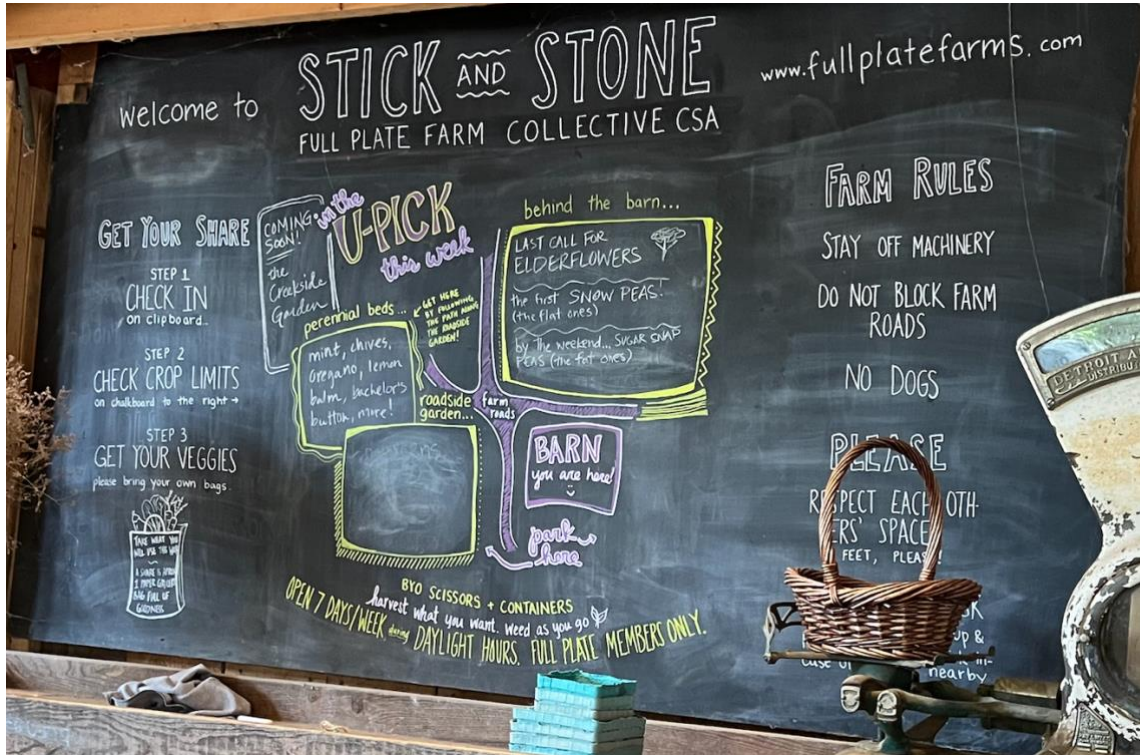 welcome to
STICK AND STONE
www.fullplatefarms.com
FULL PLATE FARM COLLECTIVE CSA
GET YOUR SHARE
STEP 1
CHECK IN
on clipboard..
STEP 2
CHECK CROP LIMITS
on chalkboard to the right →
STEP 3
GET YOUR VEGGIES
please bring your own bags.
TAKE WHAT YOU
WILL USE THE
A SHARE IS
1 PAPER
BAG FULL OF
GOODNESS
COMING
SOON!
the
Creekside
Garden
in the
U-PICK
this week
perennial beds...
GET HERE
BY FOLLOWING
THE PATH ALONG
THE ROADSIDE
GARDEN!
mint, chives,
oregano, lemon
balm, bachelor's
button, more!
roadside
garden...
farm
roads
behind the barn...
LAST CALL FOR
ELDERFLOWERS
the first SNOW PEAS.
(the flat ones)
by the weekend... SUGAR SNAP
PEAS (the fat ones)
BARN
you are here!
park
here
BYO SCISSORS + CONTAINERS
harvest what you want. weed as you go
OPEN 7 DAYS/WEEK during DAYLIGHT HOURS. FULL PLATE MEMBERS ONLY.
FARM RULES
STAY OFF MACHINERY
DO NOT BLOCK FARM
ROADS
NO DOGS
PLEASE
RESPECT EACH OTH-
ERS' SPACE
FEET, PLEASE!
up &
case of
in-
nearby
DETROIT
DISTRIBUT